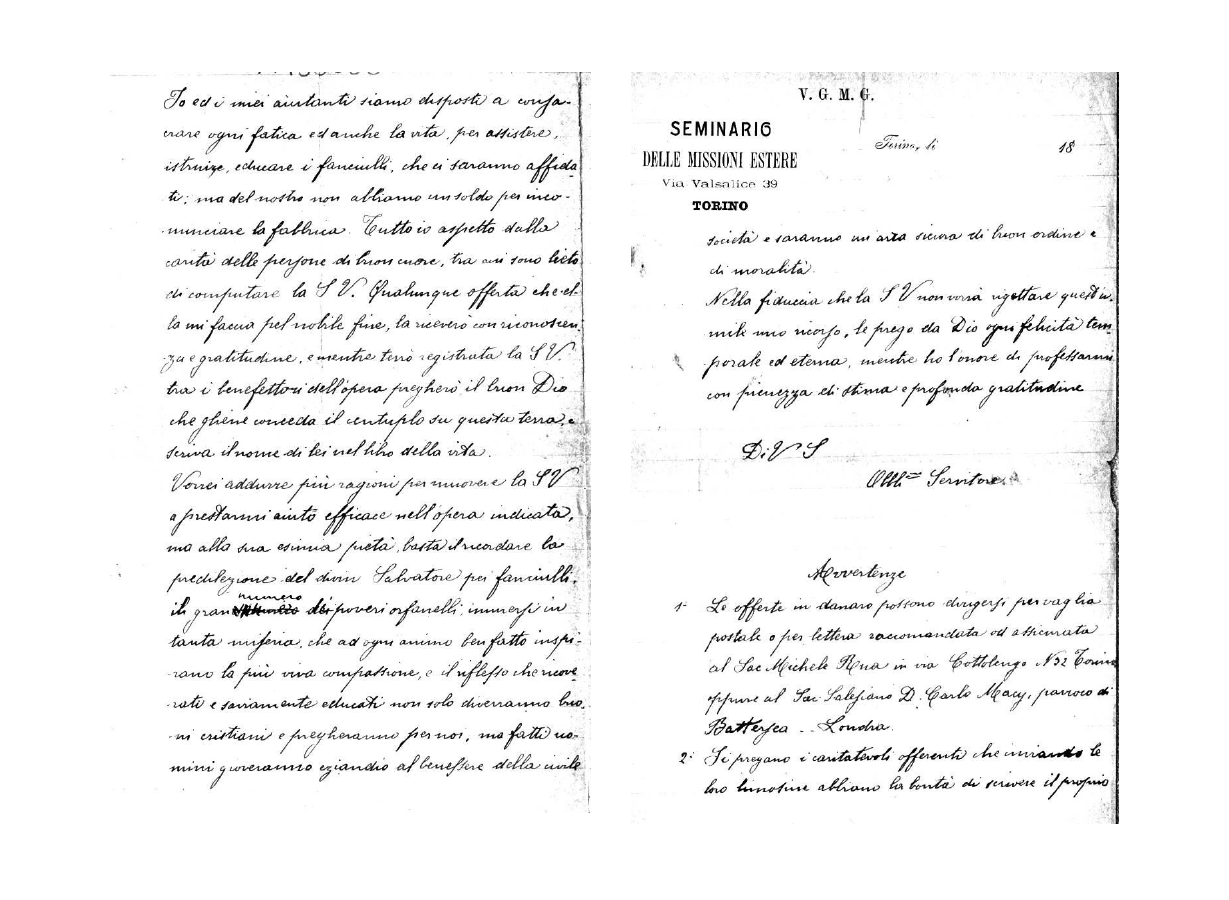 Io ed i miei aiutanti siamo disposti a consa-
crare ogni fatica ed anche la vita, per assistere,
istruire, educare i fanciulli, che ci saranno affida
ti; ma del nostro non abbiamo un soldo per inco-
minciare la fabbrica. Tutto io aspetto dalla
carità delle persone di buon cuore, tra cui sono lieto
di computare la S V. Qualunque offerta che el-
la mi faccia pel nobile fine, la riceverò con riconoscen
za e gratitudine, e mentre terrò registrata la S V.
tra i benefettori dell'opera pregherò il buon Dio
che gliene conceda il centuplo su questa terra, e
scriva il nome di lei nel libro della vita.
Vorrei addurre più ragioni per muovere la S V
a prestarmi aiuto efficace nell'opera indicata,
ma alla sua esimia pietà, basta il ricordare la
predilezione del divin Salvatore pei fanciulli,
numero
il gran dei poveri orfanelli, immersi in
tanta miseria, che ad ogni animo ben fatto inspi-
rano la più viva compassione, e il riflesso che ricove
rati e saviamente educati non solo diverranno buo
ni cristiani e pregheranno per noi, ma fatti uo-
mini gioveranno eziandio al benessere della civile
V. G. M. G.
SEMINARIO
DELLE MISSIONI ESTERE
Via Valsalice 39
TORINO
Torino, li 18
società e saranno un'arra sicura di buon ordine e
di moralità.
Nella fiducia che la S V non vorrà rigettare quest'u-
mile mio ricorso, le prego da Dio ogni felicità tem
porale ed eterna, mentre ho l'onore di professarmi
con pienezza di stima e profonda gratitudine
Di V S
Servitore
Avvertenze
1° Le offerte in danaro possono dirigersi per vaglia
postale o per lettera raccomandata od assicurata
al Sac Michele Rua in via Cottolengo N 32 Torino
oppure al Sac. Salesiano D. Carlo Macey, parroco di
Battersea - Londra.
2° Si pregano i caritatevoli offerenti che inviando le
loro limosine abbiano la bontà di scrivere il proprio